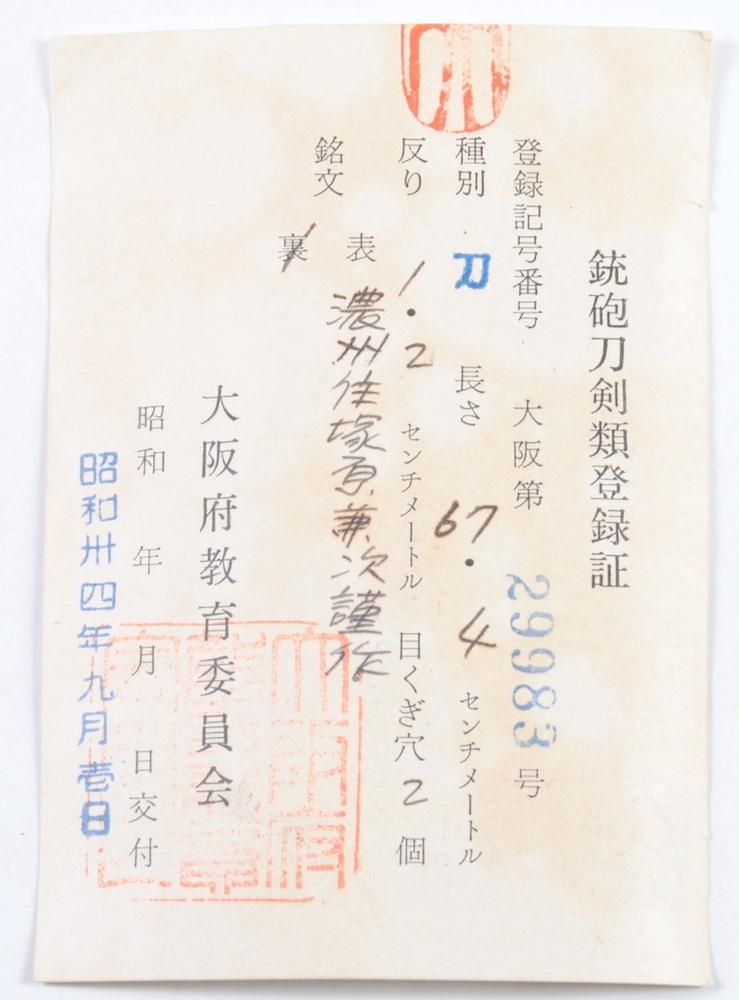 銃砲刀剣類登録証
登録記号番号 大阪第 29983 号
種別 刀 長さ 67.4 センチメートル
反り 1.2 センチメートル 目くぎ穴 2 個
銘文 表 濃州住塚原兼次謹作
裏
大阪府教育委員会
昭和 年 月 日交付
昭和卅四年九月壱日